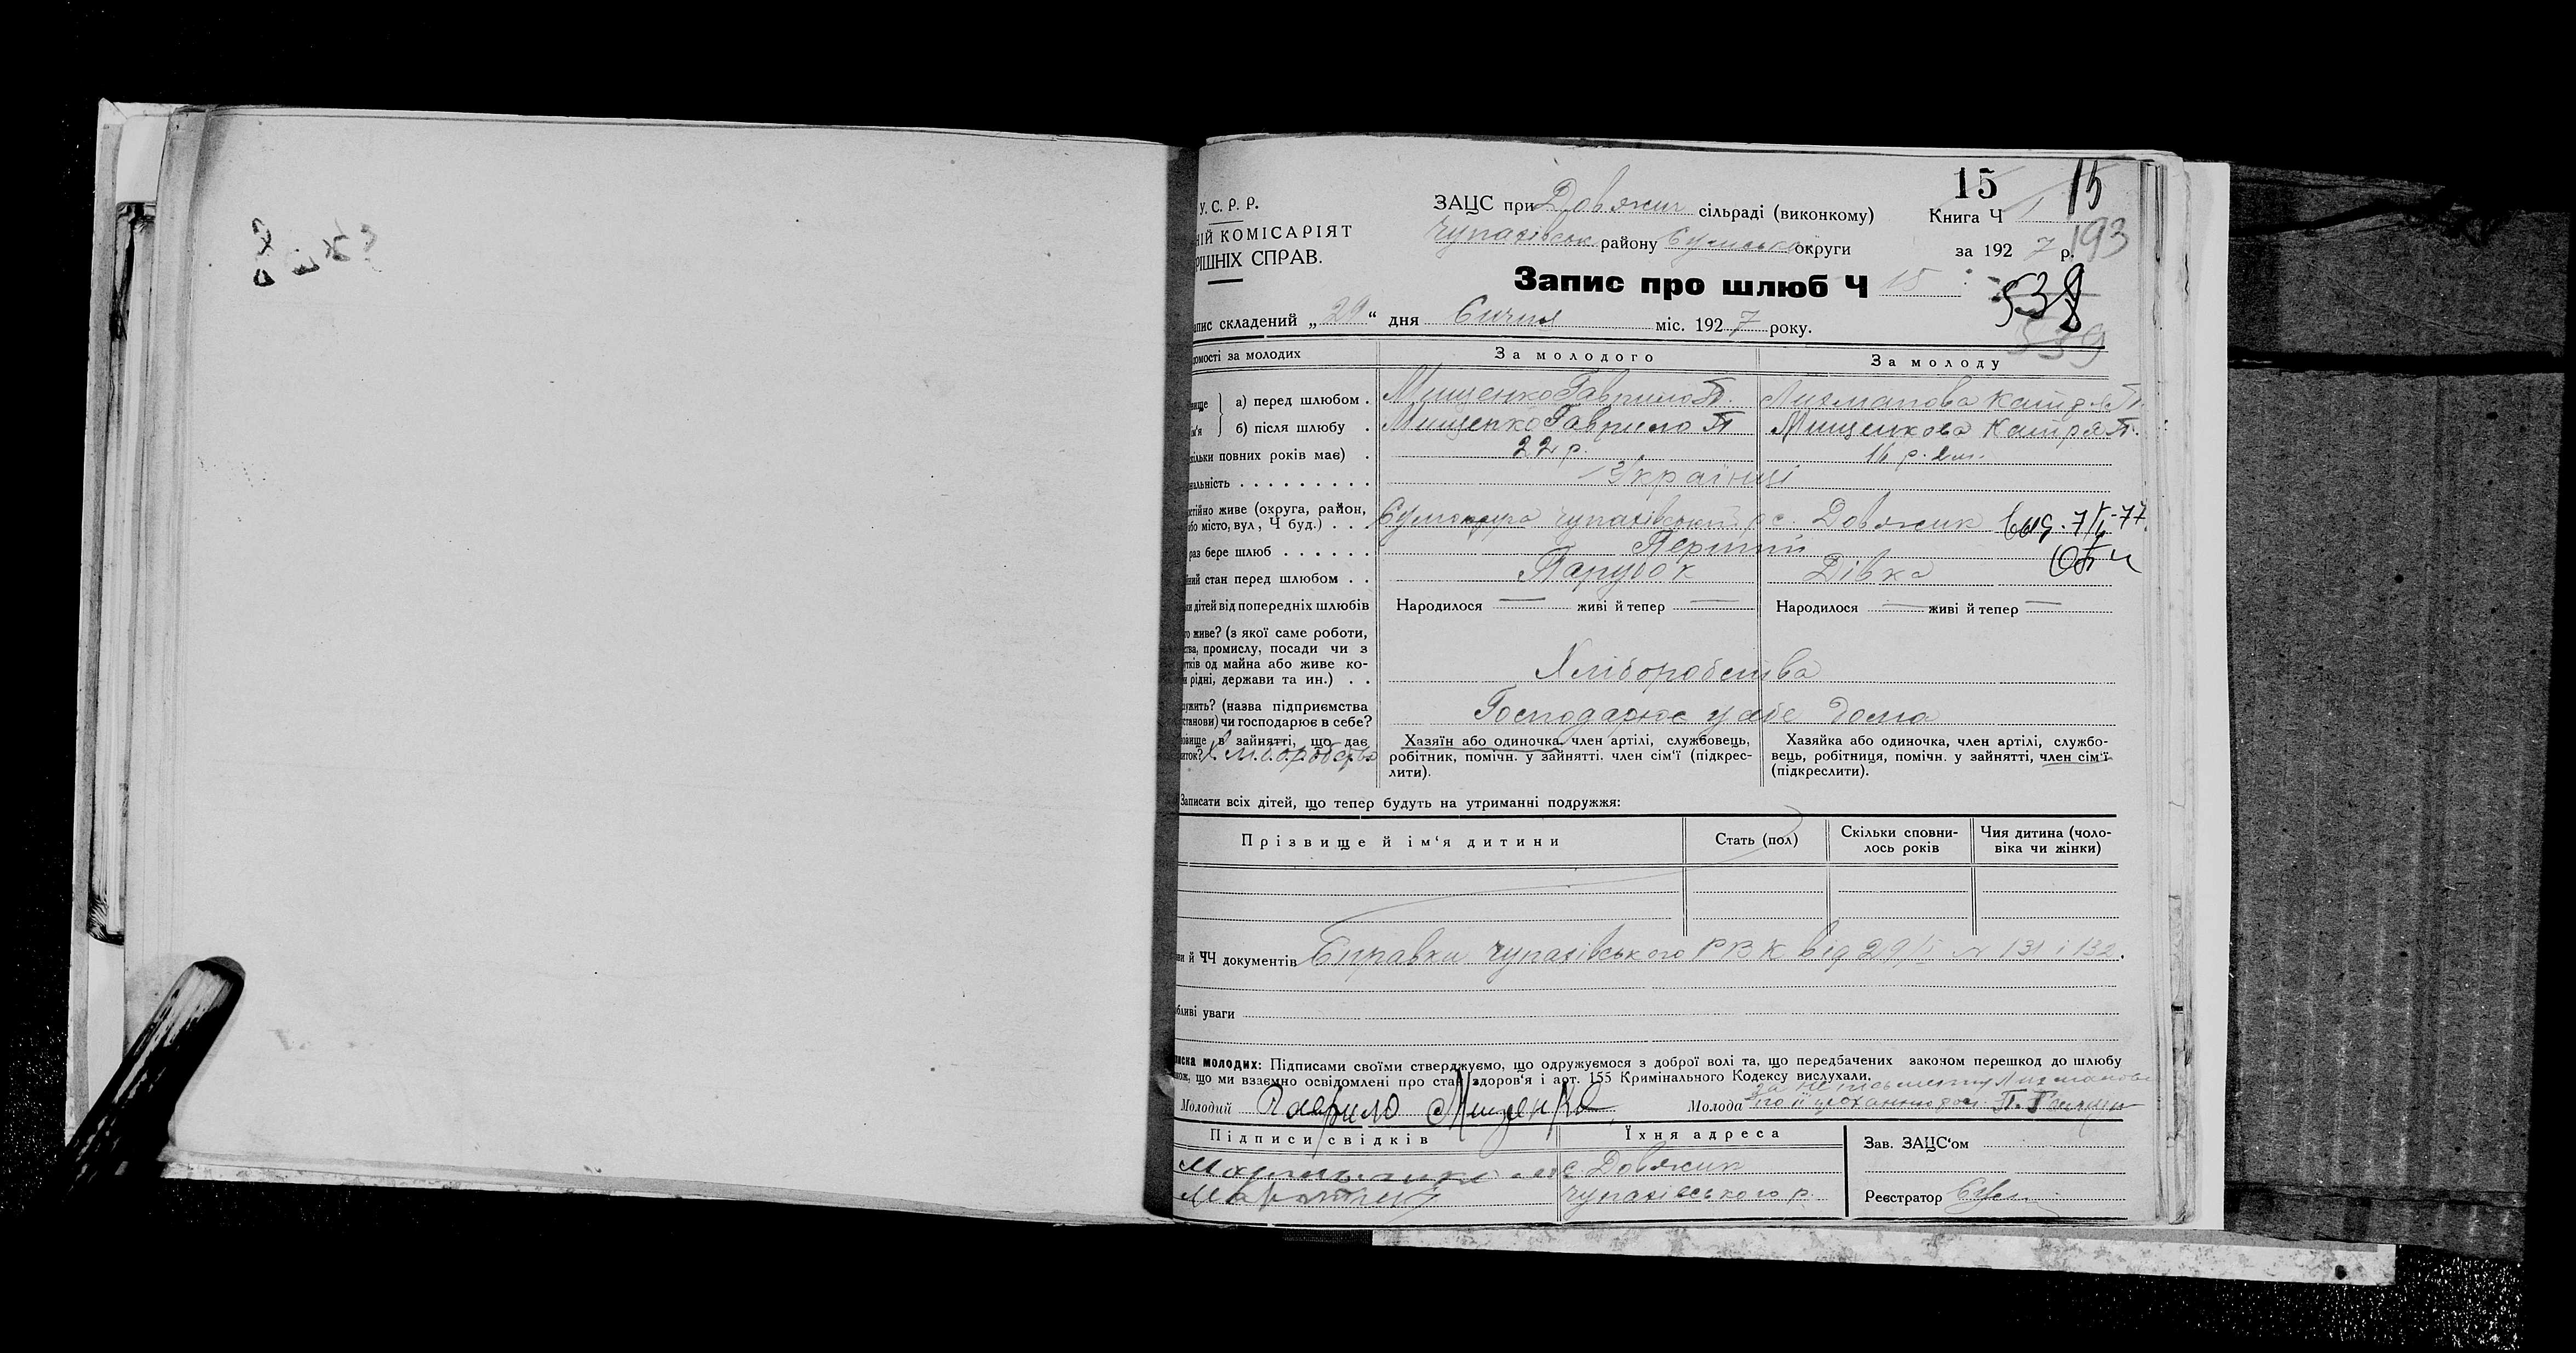 15 15
У. С. Р. Р.
ЗАЦС при Довжик сільраді (виконкому) Книга Ч 1
НІЙ КОМІСАРІЯТ
Чупахівськ району Сумська округи за 1927 р. 193
РІШНІХ СПРАВ.
Запис про шлюб Ч 15
538
539
апис складений „29“ дня Січня міс. 1927 року.
домості за молодих За молодого За молоду
а) перед шлюбом . Мищенко Гаврило П. Лихманова Катря П.
б) після шлюбу . Мищенко Гаврило П Мищенкова Катря П.
кільки повних років має) . 22 р. 16 р. 2 м.
нальність . . . . . . . . . Українці
остійно живе (округа, район,
або місто, вул, Ч буд.) . . . Сумокруга Чупахівський р с. Довжик
раз бере шлюб . . . . . . Перший
ний стан перед шлюбом . . Парубок Дівка
ки дітей від попередніх шлюбів Народилося — живі й тепер — Народилося — живі й тепер —
го живе? (з якої саме роботи,
ства, промислу, посади чи з
утків од майна або живе ко-
и рідні, держави та ин.) . . Хліборобства
лужить? (назва підприємства
установи) чи господарює в себе? Господарює у себе дома
новище в зайнятті, що дає
иток? Хліборобство
Хазяїн або одиночка, член артілі, службовець,
робітник, помічн. у зайнятті. член сім'ї (підкрес-
лити).
Хазяйка або одиночка, член артілі, службо-
вець, робітниця, помічн. у зайнятті, член сім'ї
(підкреслити).
Записати всіх дітей, що тепер будуть на утриманні подружжя:
Прізвище й ім'я дитини Стать (пол) Скільки сповни-
лось років Чия дитина (чоло-
віка чи жінки)
ви й ЧЧ документів Справки Чупахівського РВК від 29/I № 131 і 132.
бливі уваги
писка молодих: Підписами своїми стверджуємо, що одружуємося з доброї волі та, що передбачених законом перешкод до шлюбу
кож, що ми взаємно освідомлені про стан здоров'я і арт. 155 Кримінального Кодексу вислухали.
Молодий Гаврило Мищенко Молода
Підписи свідків Їхня адреса Зав. ЗАЦС'ом
с. Довжик
Чупахівського р. Реєстратор